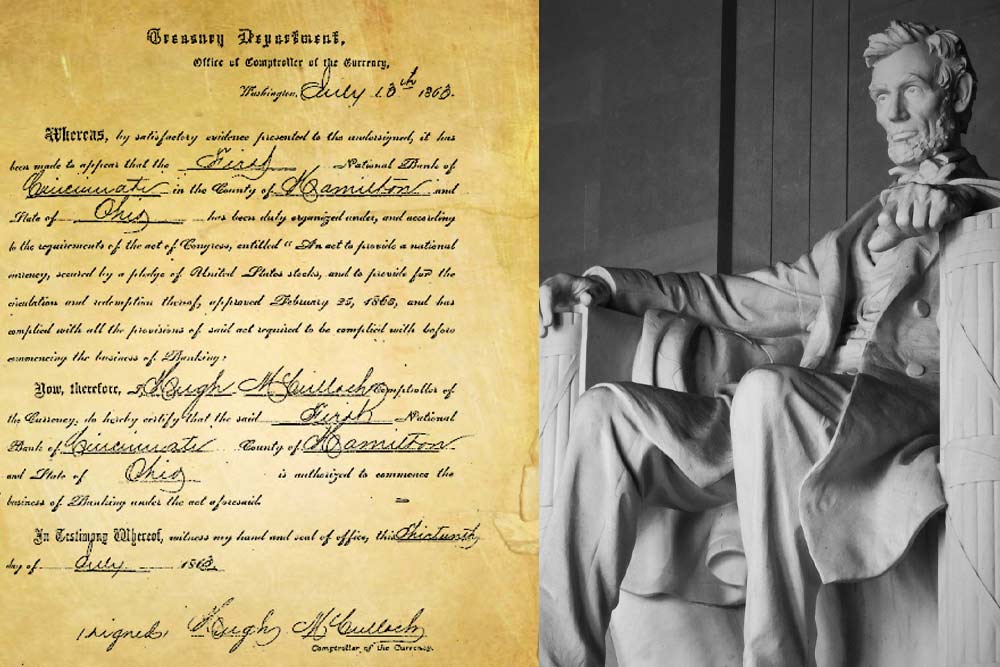 Treasury Department,
Office of Comptroller of the Currency,
Washington, July 13th 1863.
Whereas, by satisfactory evidence presented to the undersigned, it has
been made to appear that the First National Bank of
Cincinnati in the County of Hamilton and
State of Ohio has been duly organized under, and according
to the requirements of the act of Congress, entitled "An act to provide a national
currency, secured by a pledge of United States stocks, and to provide for the
circulation and redemption thereof, approved February 25, 1863, and has
complied with all the provisions of said act required to be complied with before
commencing the business of Banking:
Now, therefore, I Hugh McCulloch Comptroller of
the Currency, do hereby certify that the said First National
Bank of Cincinnati County of Hamilton
and State of Ohio is authorized to commence the
business of Banking under the act aforesaid.
In Testimony Whereof, witness my hand and seal of office, this
day of July 1863.
signed, Hugh McCulloch
Comptroller of the Currency.